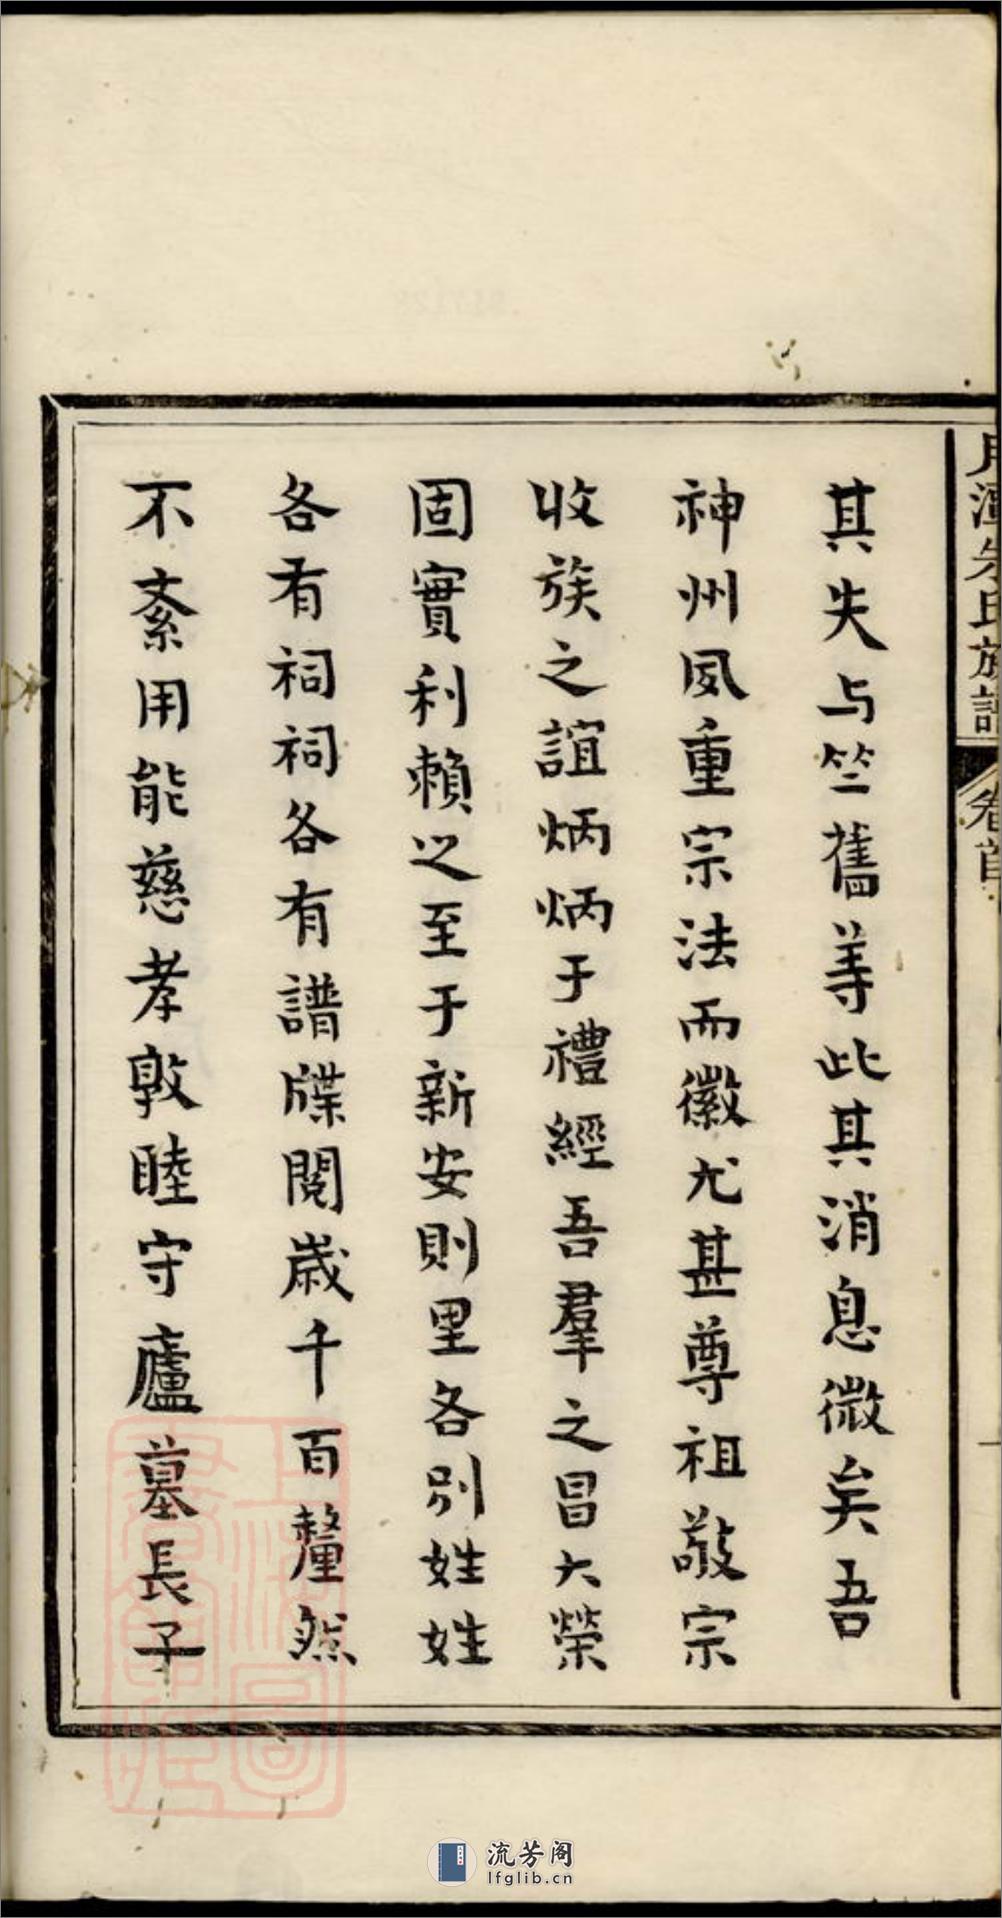 月潭朱氏族譜 卷首 一
其失与竺舊等此其消息微矣吾
神州風重宗法而徽尤甚尊祖敬宗
收族之誼炳炳于禮經吾羣之昌大榮
固實利賴之至于新安則里各別姓姓
各有祠祠各有譜牒閱歲千百釐然
不紊用能慈孝敦睦守廬墓長子
上海圖
書館藏
流芳阁
lfglib.cn